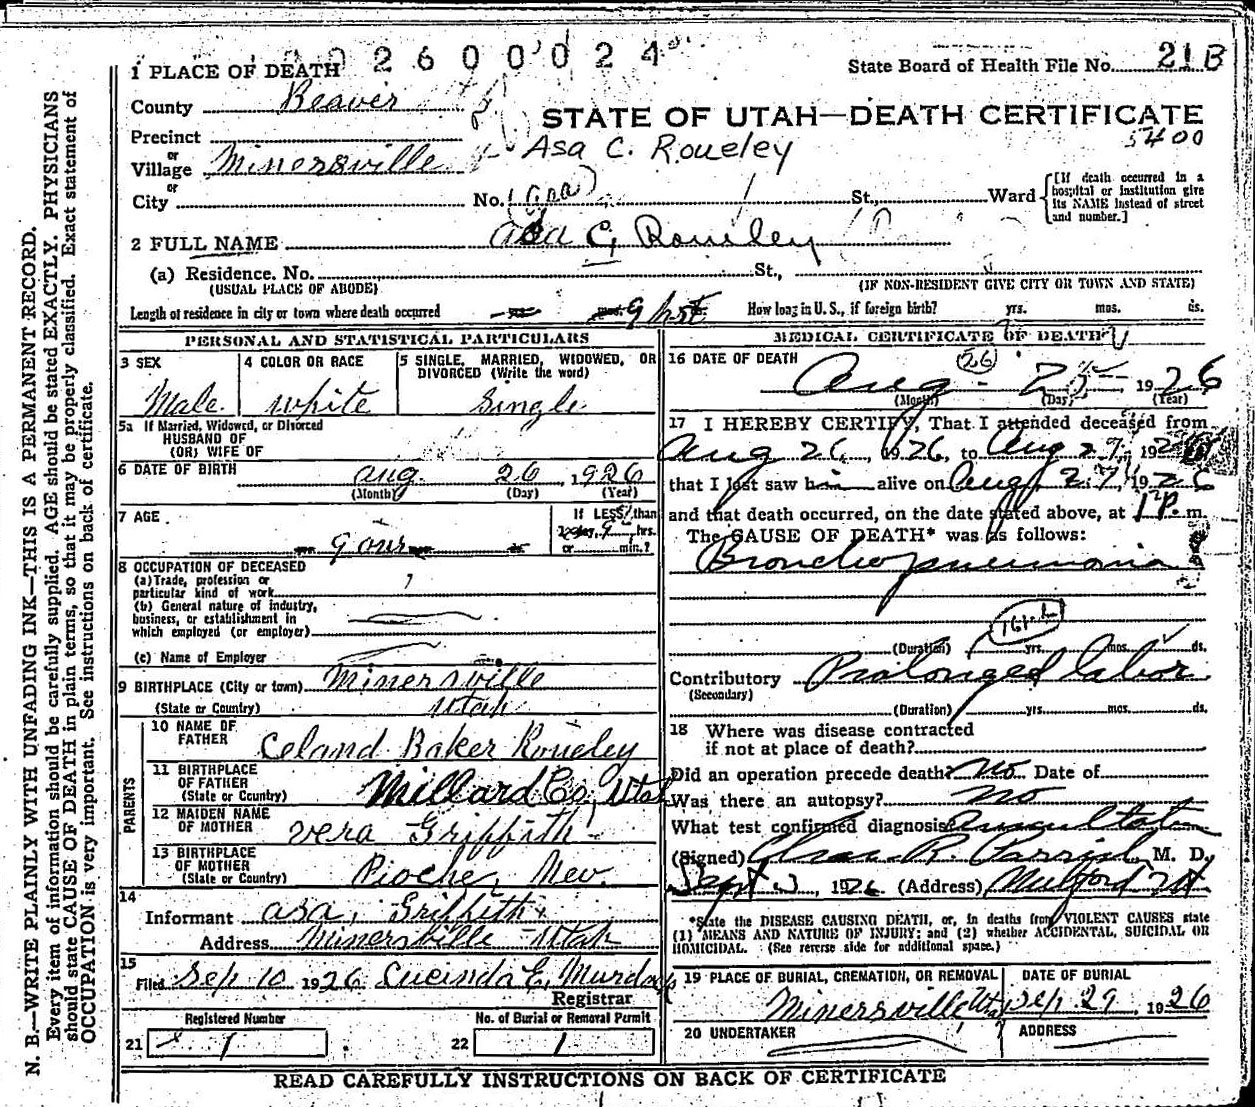 2 6 0 0 0 2 4
State Board of Health File No. 21 B
1 PLACE OF DEATH
County Beaver
STATE OF UTAH—DEATH CERTIFICATE
5400
Precinct
or
Village Minersville
Asa C. Roueley
or
City No. (Asa) St., Ward
[If death occurred in a hospital or institution give its NAME instead of street and number.]
2 FULL NAME Asa C. Roueley
(a) Residence. No. St.,
(USUAL PLACE OF ABODE) (IF NON-RESIDENT GIVE CITY OR TOWN AND STATE)
Length of residence in city or town where death occurred yrs. mos. 9 hrs How long in U. S., if foreign birth? yrs. mos. ds.
PERSONAL AND STATISTICAL PARTICULARS
3 SEX
Male
4 COLOR OR RACE
white
5 SINGLE, MARRIED, WIDOWED, OR DIVORCED (Write the word)
Single
5a If Married, Widowed, or Divorced
HUSBAND OF
(OR) WIFE OF
6 DATE OF BIRTH aug. 26, 1926
(Month) (Day) (Year)
7 AGE
If LESS than
1 day, 9 hrs.
or min.?
9 our
8 OCCUPATION OF DECEASED
(a) Trade, profession or
particular kind of work
(b) General nature of industry,
business, or establishment in
which employed (or employer)
(c) Name of Employer
9 BIRTHPLACE (City or town) Minersville
(State or Country) Utah
PARENTS
10 NAME OF
FATHER Celand Baker Roueley
11 BIRTHPLACE
OF FATHER
(State or Country) Millard Co, Utah
12 MAIDEN NAME
OF MOTHER vera Griffith
13 BIRTHPLACE
OF MOTHER
(State or Country) Pioche, Nev.
14
Informant asa, Griffith
Address Minersville Utah
15
Filed Sep 10 1926 Lucinda E. Murdock
Registrar
Registered Number No. of Burial or Removal Permit
21 1 22 1
MEDICAL CERTIFICATE OF DEATH
16 DATE OF DEATH (26)
Aug - 25 1926
(Month) (Day) (Year)
17 I HEREBY CERTIFY, That I attended deceased from
Aug 26, 1926, to Aug 27, 1926
that I last saw him alive on Aug 27, 1926
and that death occurred, on the date stated above, at 1 P. m.
The CAUSE OF DEATH* was as follows:
Broncho pneumonia
161-b
(Duration) yrs. mos. ds.
Contributory Prolonged labor
(Secondary)
(Duration) yrs. mos. ds.
18 Where was disease contracted
if not at place of death?
Did an operation precede death? no Date of
Was there an autopsy? no
What test confirmed diagnosis Auscultation
(Signed) Chas. R. Parrish, M. D.
Sept 3, 1926 (Address) Milford Ut
*State the DISEASE CAUSING DEATH, or, in deaths from VIOLENT CAUSES state
(1) MEANS AND NATURE OF INJURY; and (2) whether ACCIDENTAL, SUICIDAL OR
HOMICIDAL. (See reverse side for additional space.)
19 PLACE OF BURIAL, CREMATION, OR REMOVAL DATE OF BURIAL
Minersville Uta Sep 29 1926
20 UNDERTAKER ADDRESS
READ CAREFULLY INSTRUCTIONS ON BACK OF CERTIFICATE
N. B.—WRITE PLAINLY WITH UNFADING INK—THIS IS A PERMANENT RECORD.
Every item of information should be carefully supplied. AGE should be stated EXACTLY. PHYSICIANS
should state CAUSE OF DEATH in plain terms, so that it may be properly classified. Exact statement of
OCCUPATION is very important. See instructions on back of certificate.